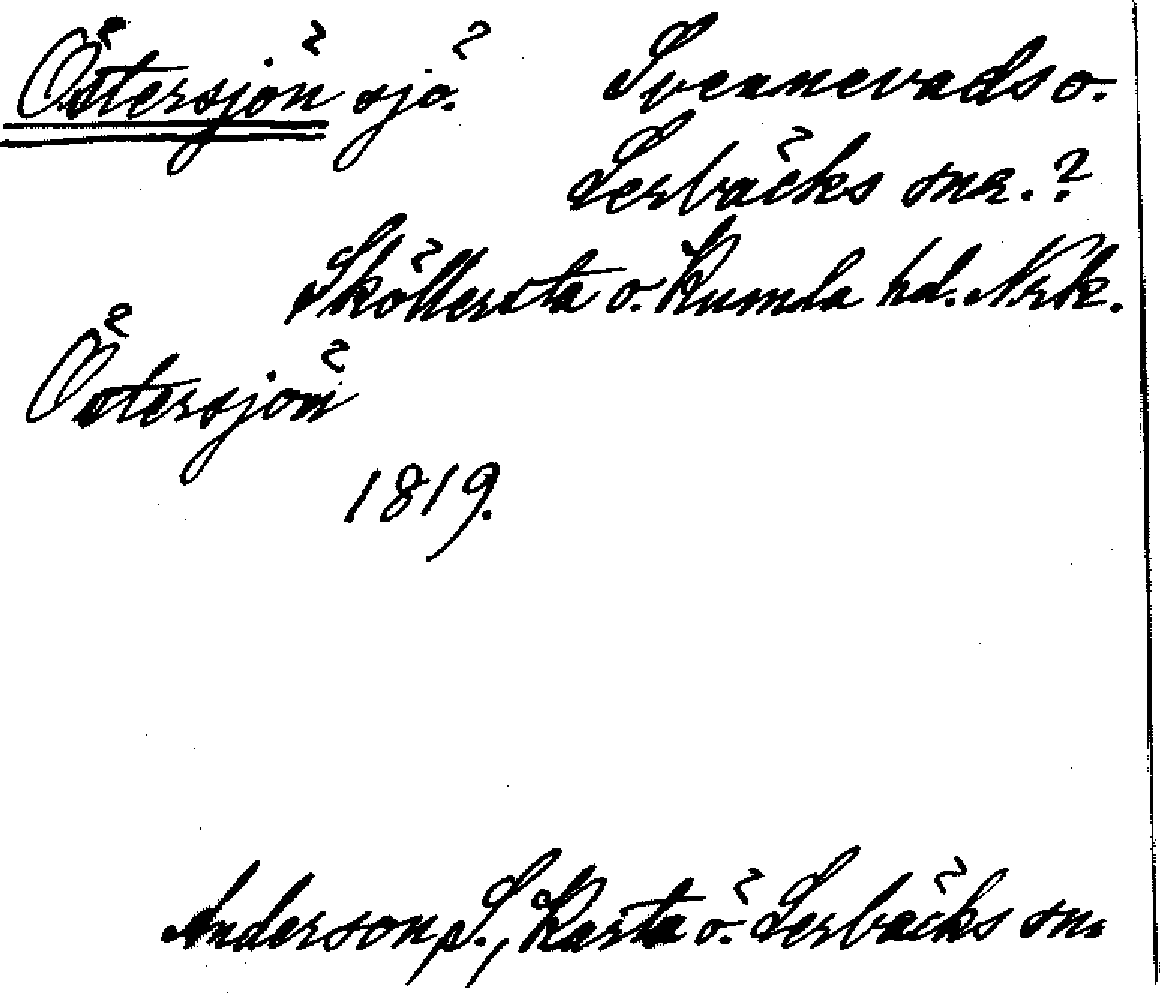 Östersjön sjö. Svennevads o.
Lerbäcks snr.?
Sköllersta o. Kumla hd. Nrk.
Östersjön
1819.
Anderson, S., Karta ö. Lerbäcks sn.